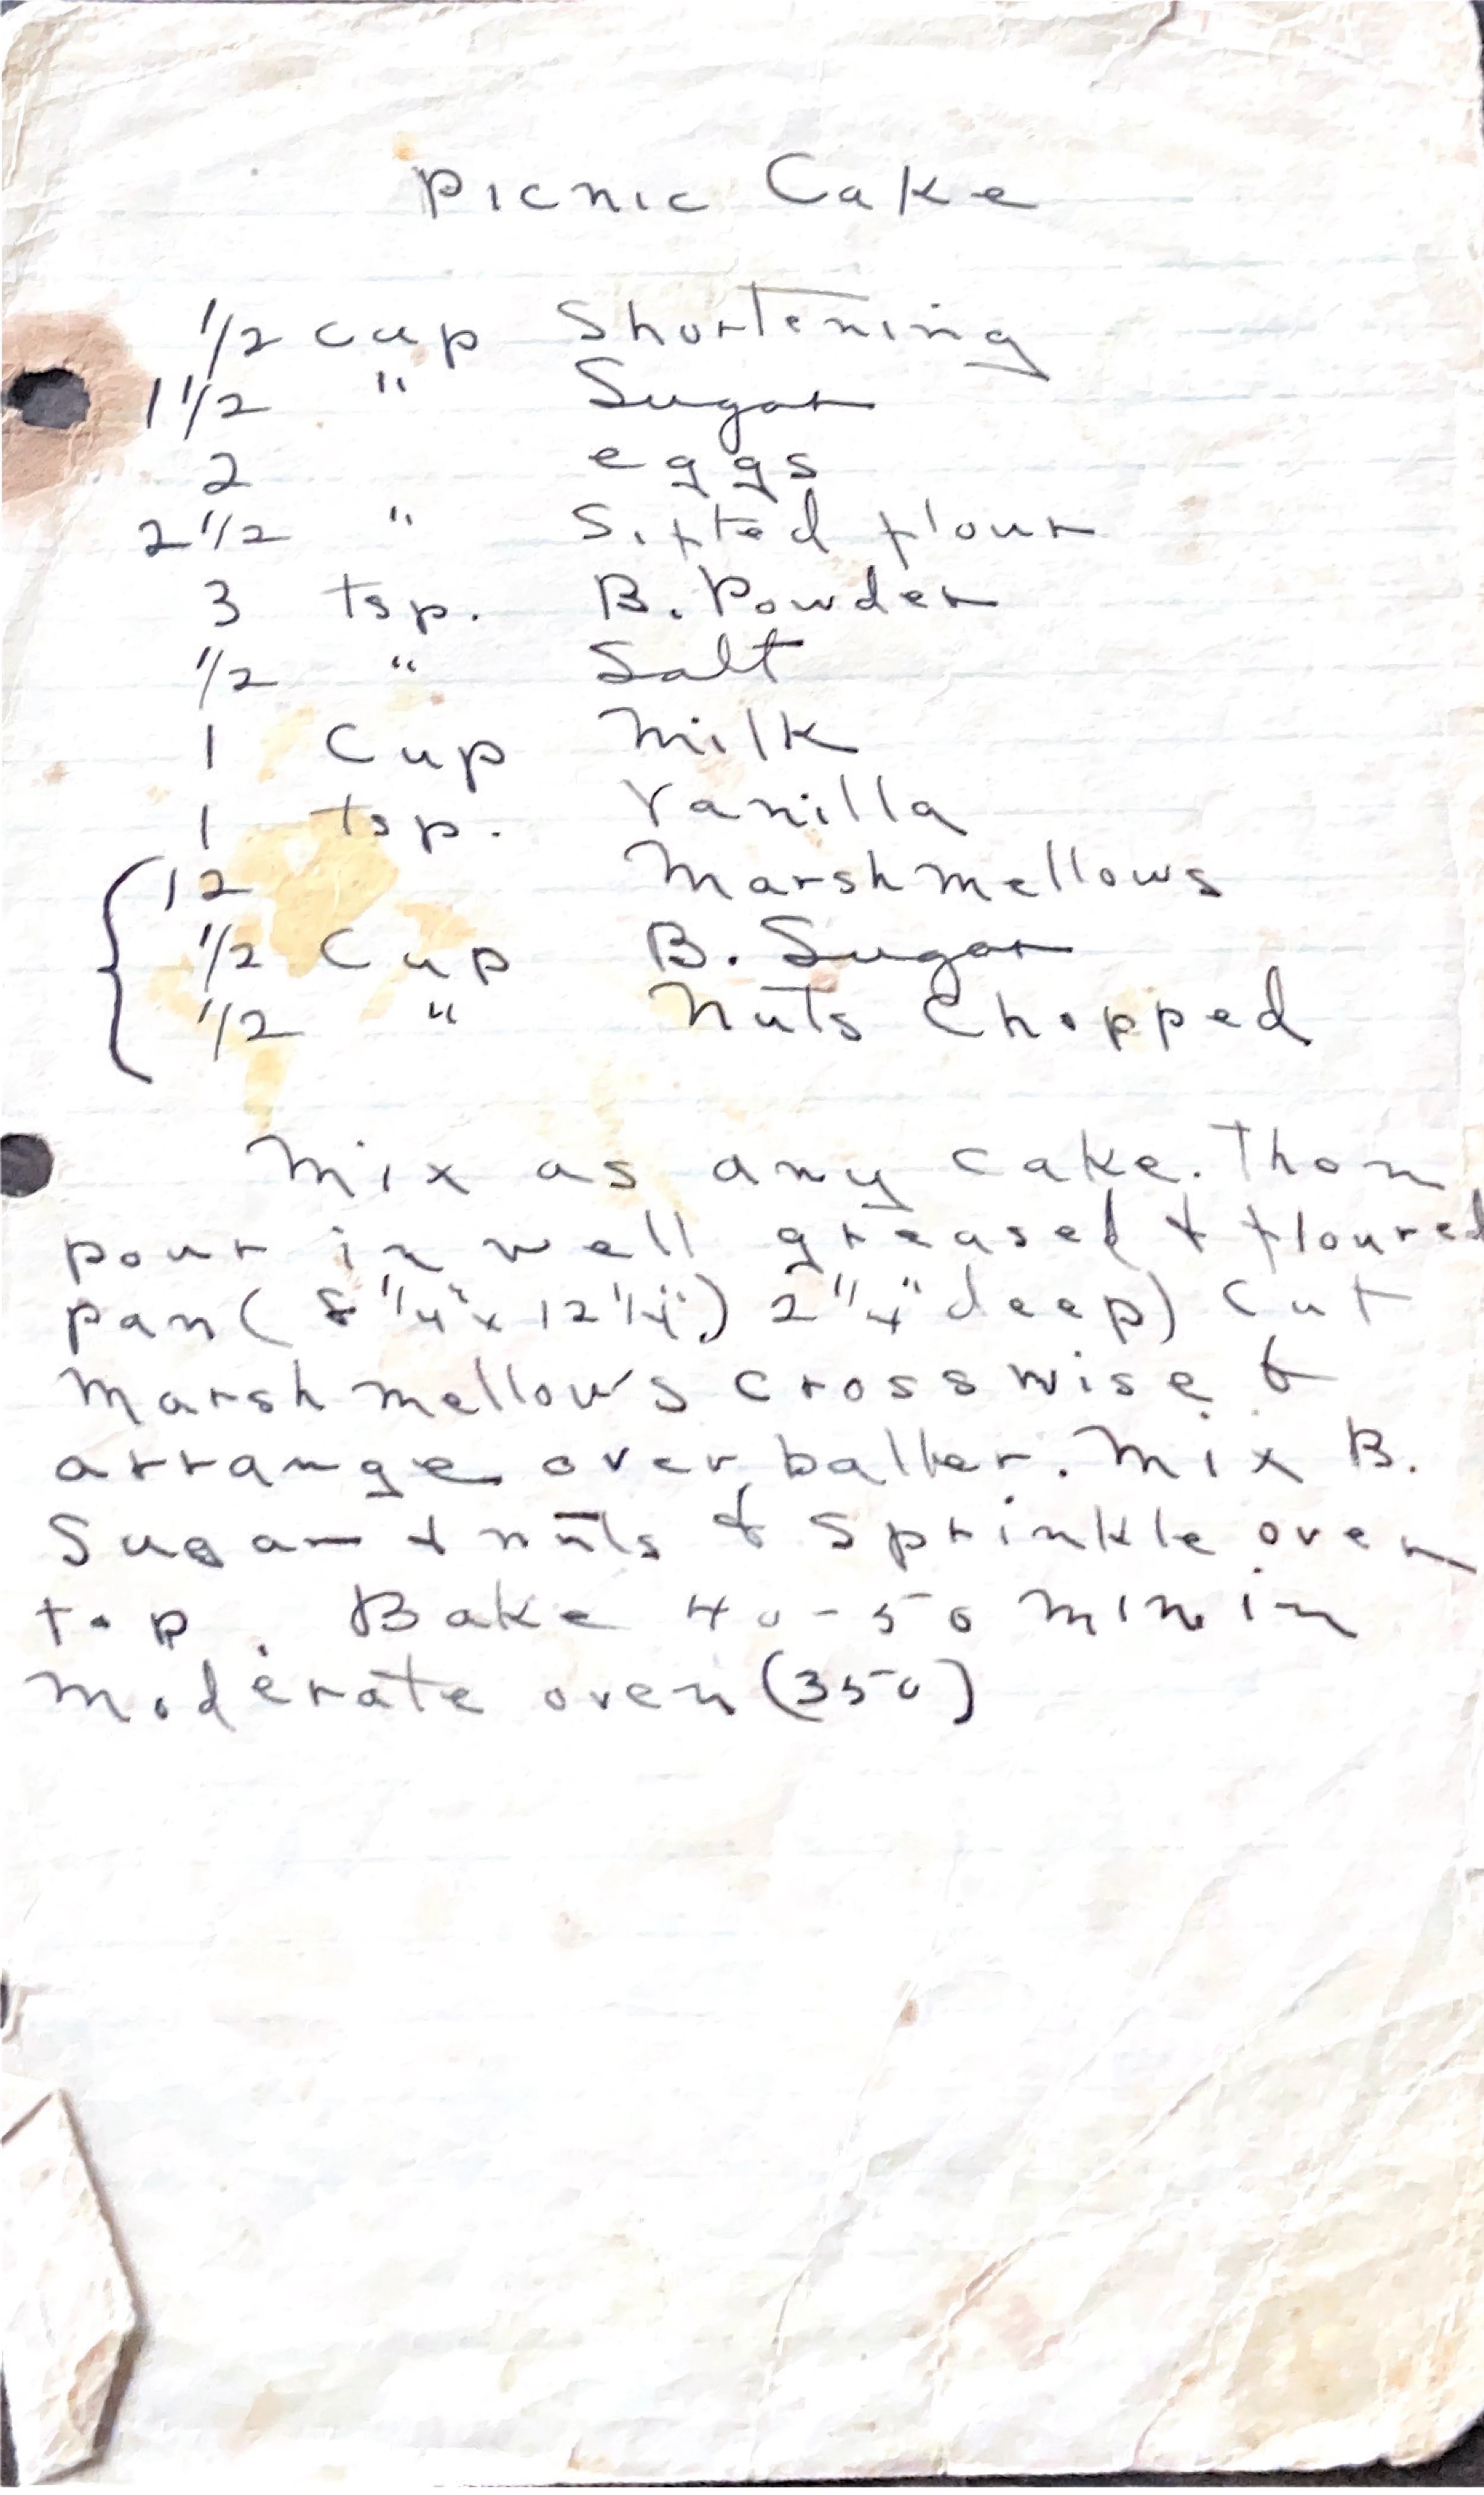 Picnic Cake
1/2 cup Shortening
1 1/2 " Sugar
2 eggs
2 1/2 " Sifted flour
3 tsp. B. Powder
1/2 " Salt
1 Cup Milk
1 tsp. Vanilla
12 Marshmellows
1/2 Cup B. Sugar
1/2 " Nuts Chopped
Mix as any cake. Then
pour in well greased & floured
pan ( 8 1/4" x 12 1/4") 2 1/4" deep) Cut
Marshmellows crosswise &
arrange over batter. Mix B.
Sugar & nuts & Sprinkle over
top. Bake 40-50 min in
Moderate oven (350)